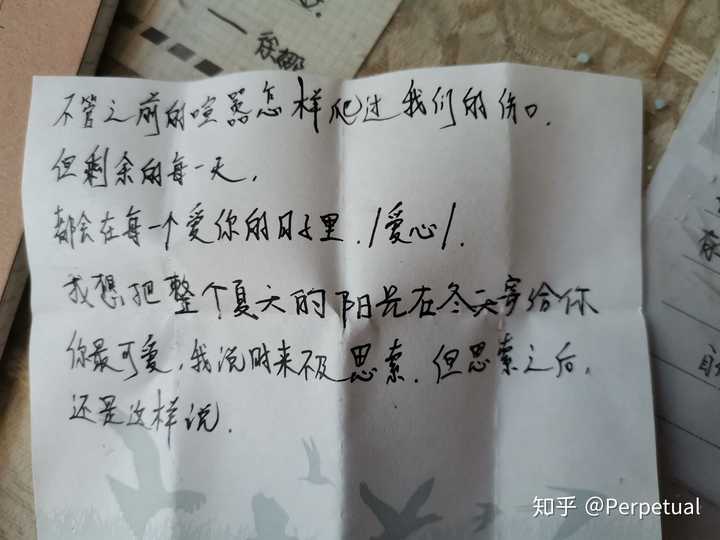 一徐
不管之前的喧嚣怎样爬过我们的伤口.
但剩余的每一天,
都会在每一个爱你的日子里./爱心/.
我想把整个夏天的阳光在冬天寄给你
你最可爱,我说时来不及思索.但思索之后,
还是这样说.
知乎 @Perpetual